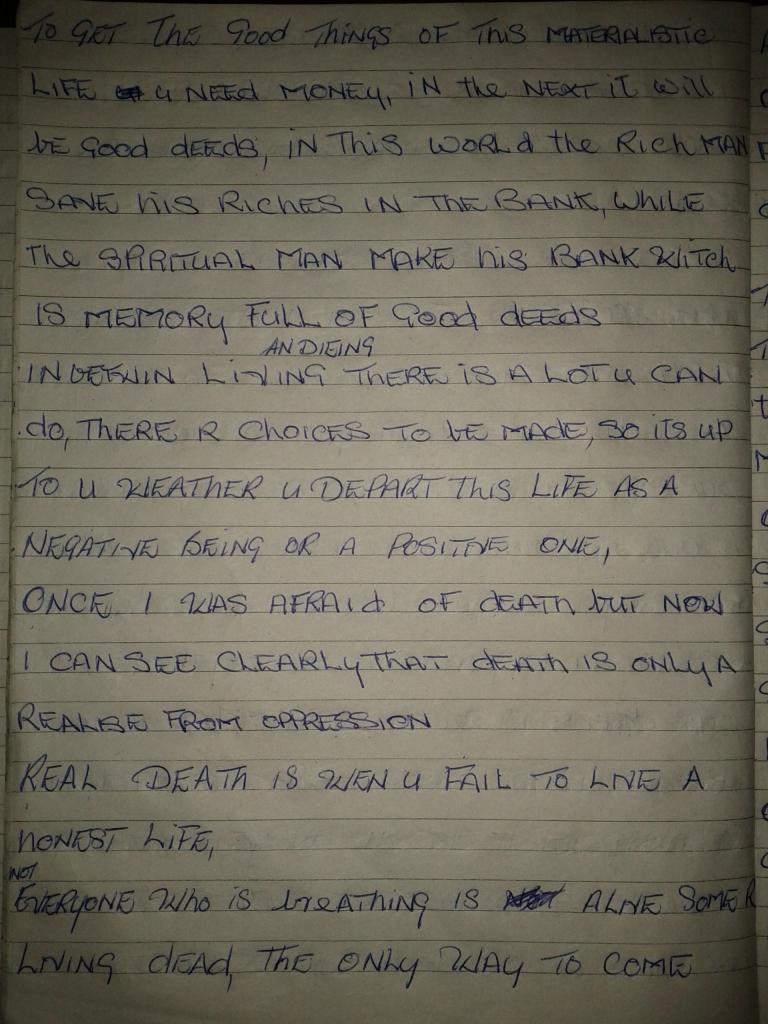 TO GET The Good Things OF This MATERIALISTIC
LIFE u NEEd MONEY, iN the NEXT iT will
bE Good dEEds, iN This WORLd the Rich MAN
SAVE his RiCHES IN THE BANK, WhiLE
The SPRITUAL MAN MAKE his BANK WITCh
IS MEMORY FULL OF Good dEEDS
AN DIEING
IN BETWIN LIVING THERE iS A LOT u CAN
do, THERE R ChOICES TO bE MADE, SO ITS UP
TO U WEATHER u DEPART This LIFE AS A
NEGATIVE BEING OR A POSITIVE ONE,
ONCE I WAS AFRAId OF dEATh bUT NOW
I CAN SEE CLEARLY THAT dEATh iS ONLY A
REALESE FROM OPPRESSION
REAL DEATh IS WEN u FAIL TO LIVE A
hONEST LiFE,
NOT
EVERYONE Who is breAThing IS ALIVE SOME R
LIVING dEAd, ThE ONLY WAY TO COME